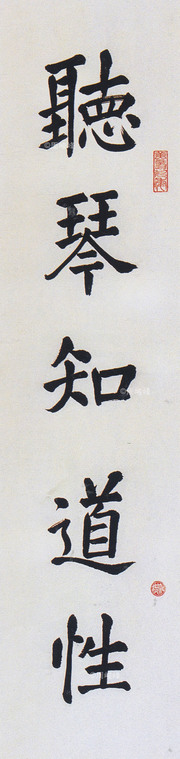 聽琴知道性